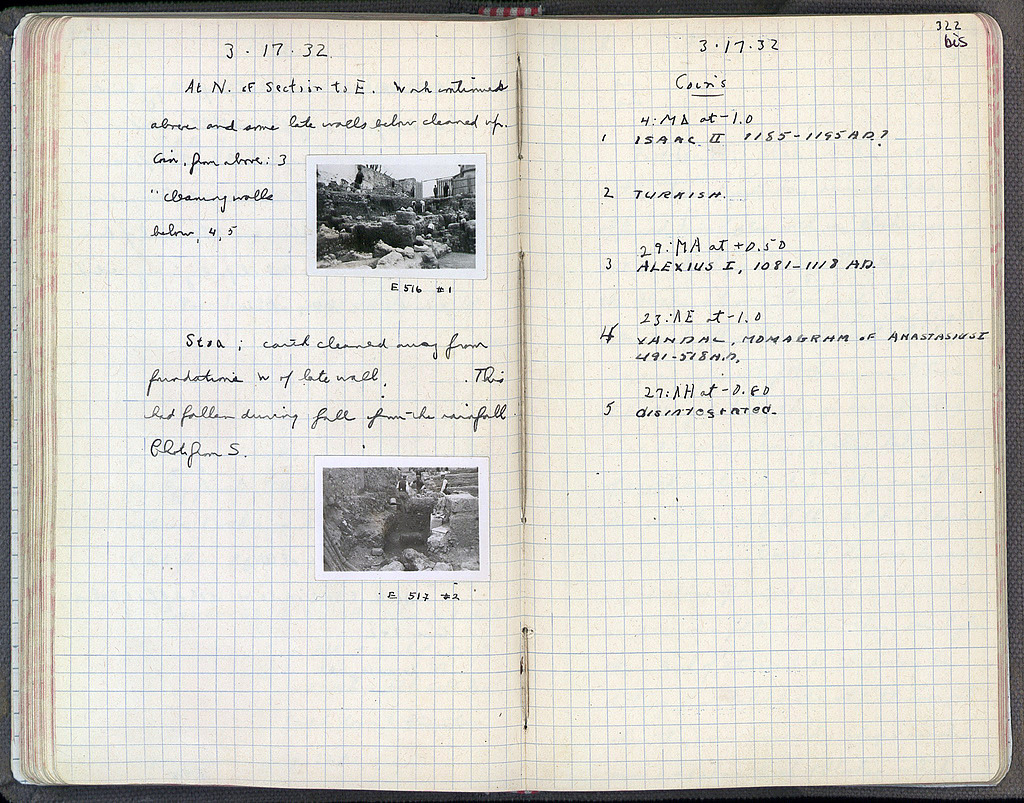 3 · 17 · 32
At N. of Section to E. Work continued
above and some late walls below cleaned up.
Coin, from above: 3
" cleaning walls
below, 4, 5
E 516 #1
Stoa; earth cleaned away from
foundations W of late wall. This
had fallen during fall from the rainfall
Photo from S.
E 517 #2
322
bis
3 · 17 · 32
Coins
4: MA at -1.0
1 ISAAC II 1185-1195 A.D.?
2 TURKISH.
29: MA at +0.50
3 ALEXIUS I, 1081-1118 AD.
23: ΛE at -1.0
4 VANDAL, MONAGRAM OF ANASTASIUS I
491-518 A.D.
27: ΛH at -0.80
5 disintegrated.